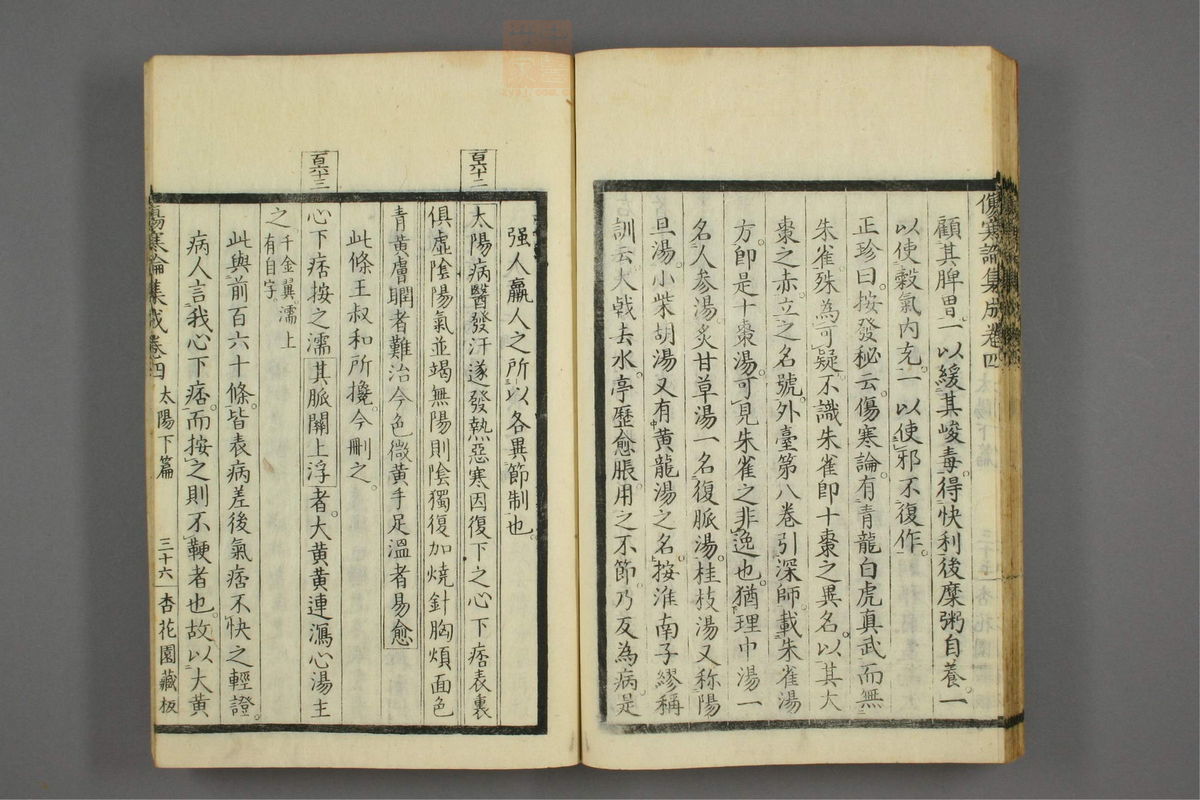 傷寒論集成卷四
顧其脾胃一以緩其峻毒得快利後糜粥自養一
以使穀氣內充一以使邪不復作
正珍曰按發秘云傷寒論有青龍白虎真武而無
朱雀殊為可疑不識朱雀即十棗之異名以其大
棗之赤立之名號外臺第八卷引深師載朱雀湯
方即是十棗湯可見朱雀之非逸也猶理中湯一
名人參湯炙甘草湯一名復脈湯桂枝湯又称陽
旦湯小柴胡湯又有黄龍湯之名按淮南子繆稱
訓云大戟去水亭歷愈脹用之不節乃反為病是
强人羸人之所以各異節制也
百六十二
太陽病醫發汗遂發熱惡寒因復下之心下痞表裏
俱虛陰陽氣並竭無陽則陰獨復加燒針胸煩面色
青黄膚瞤者難治今色微黄手足溫者易愈
此條王叔和所攙今刪之
百六十三
心下痞按之濡其脈關上浮者大黄黄連瀉心湯主
之千金翼濡上有自字
此與前百六十條皆表病差後氣痞不快之輕證
病人言我心下痞而按之則不鞕者也故以大黄
傷寒論集成卷四 太陽下篇 三十六 杏花園藏板